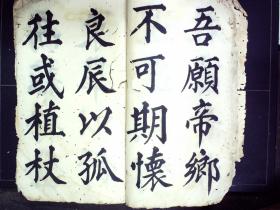 吾願帝鄉
不可期懷
良辰以孤
往或植杖